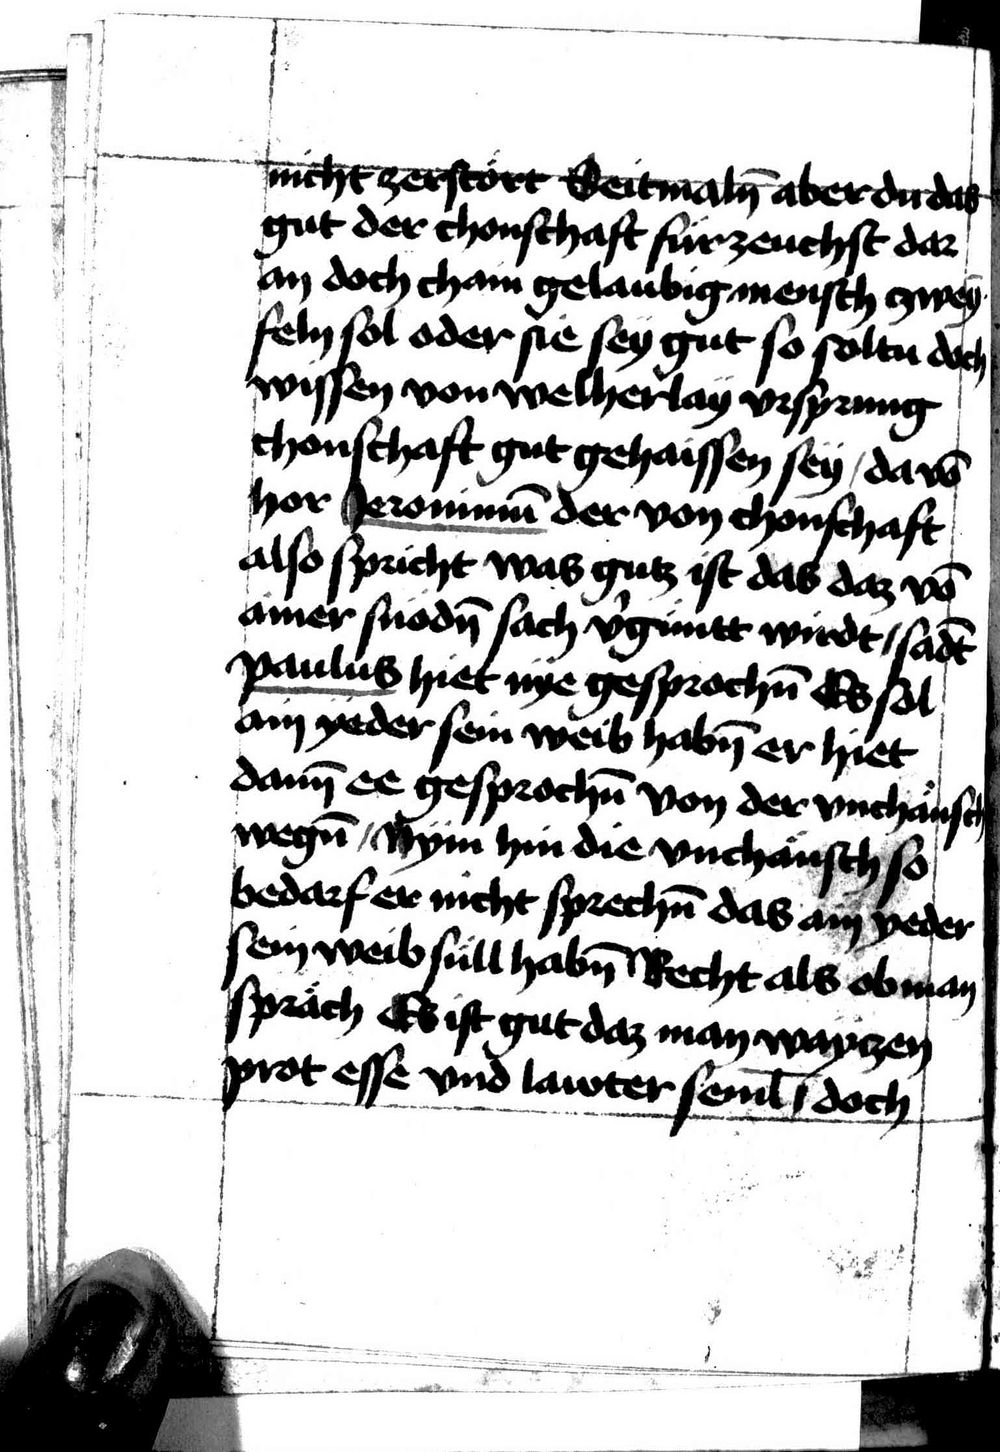 nicht zerstört Seitmaln̄ aber du das
gut der chonschaft für zeuchst dar
an doch chain gelaubig mensch zwey
feln sol oder sie sey gut so soltu doch
wissen von welherlay vrsprung
chonschaft gut gehaissen sey / da vō
hor Jeronimū der von chonschaft
also spricht was gutz ist das daz vō
ainer snödn̄ sach v'guntt wirdt / sad̄t
paulus hiet nye gesprochn̄ Es sol
ain yeder sein weib habn̄ er hiet
dann̄ ee gesprochn̄ von der vnchäusch
wegn̄ / Nym hin die vnchäusch so
bedarf er nicht sprechn̄ das ain yeder
sein weib süll habn̄ Recht als ob man
spräch Es ist gut daz man wayczen
prot esse vnd lawter seml̄ / doch